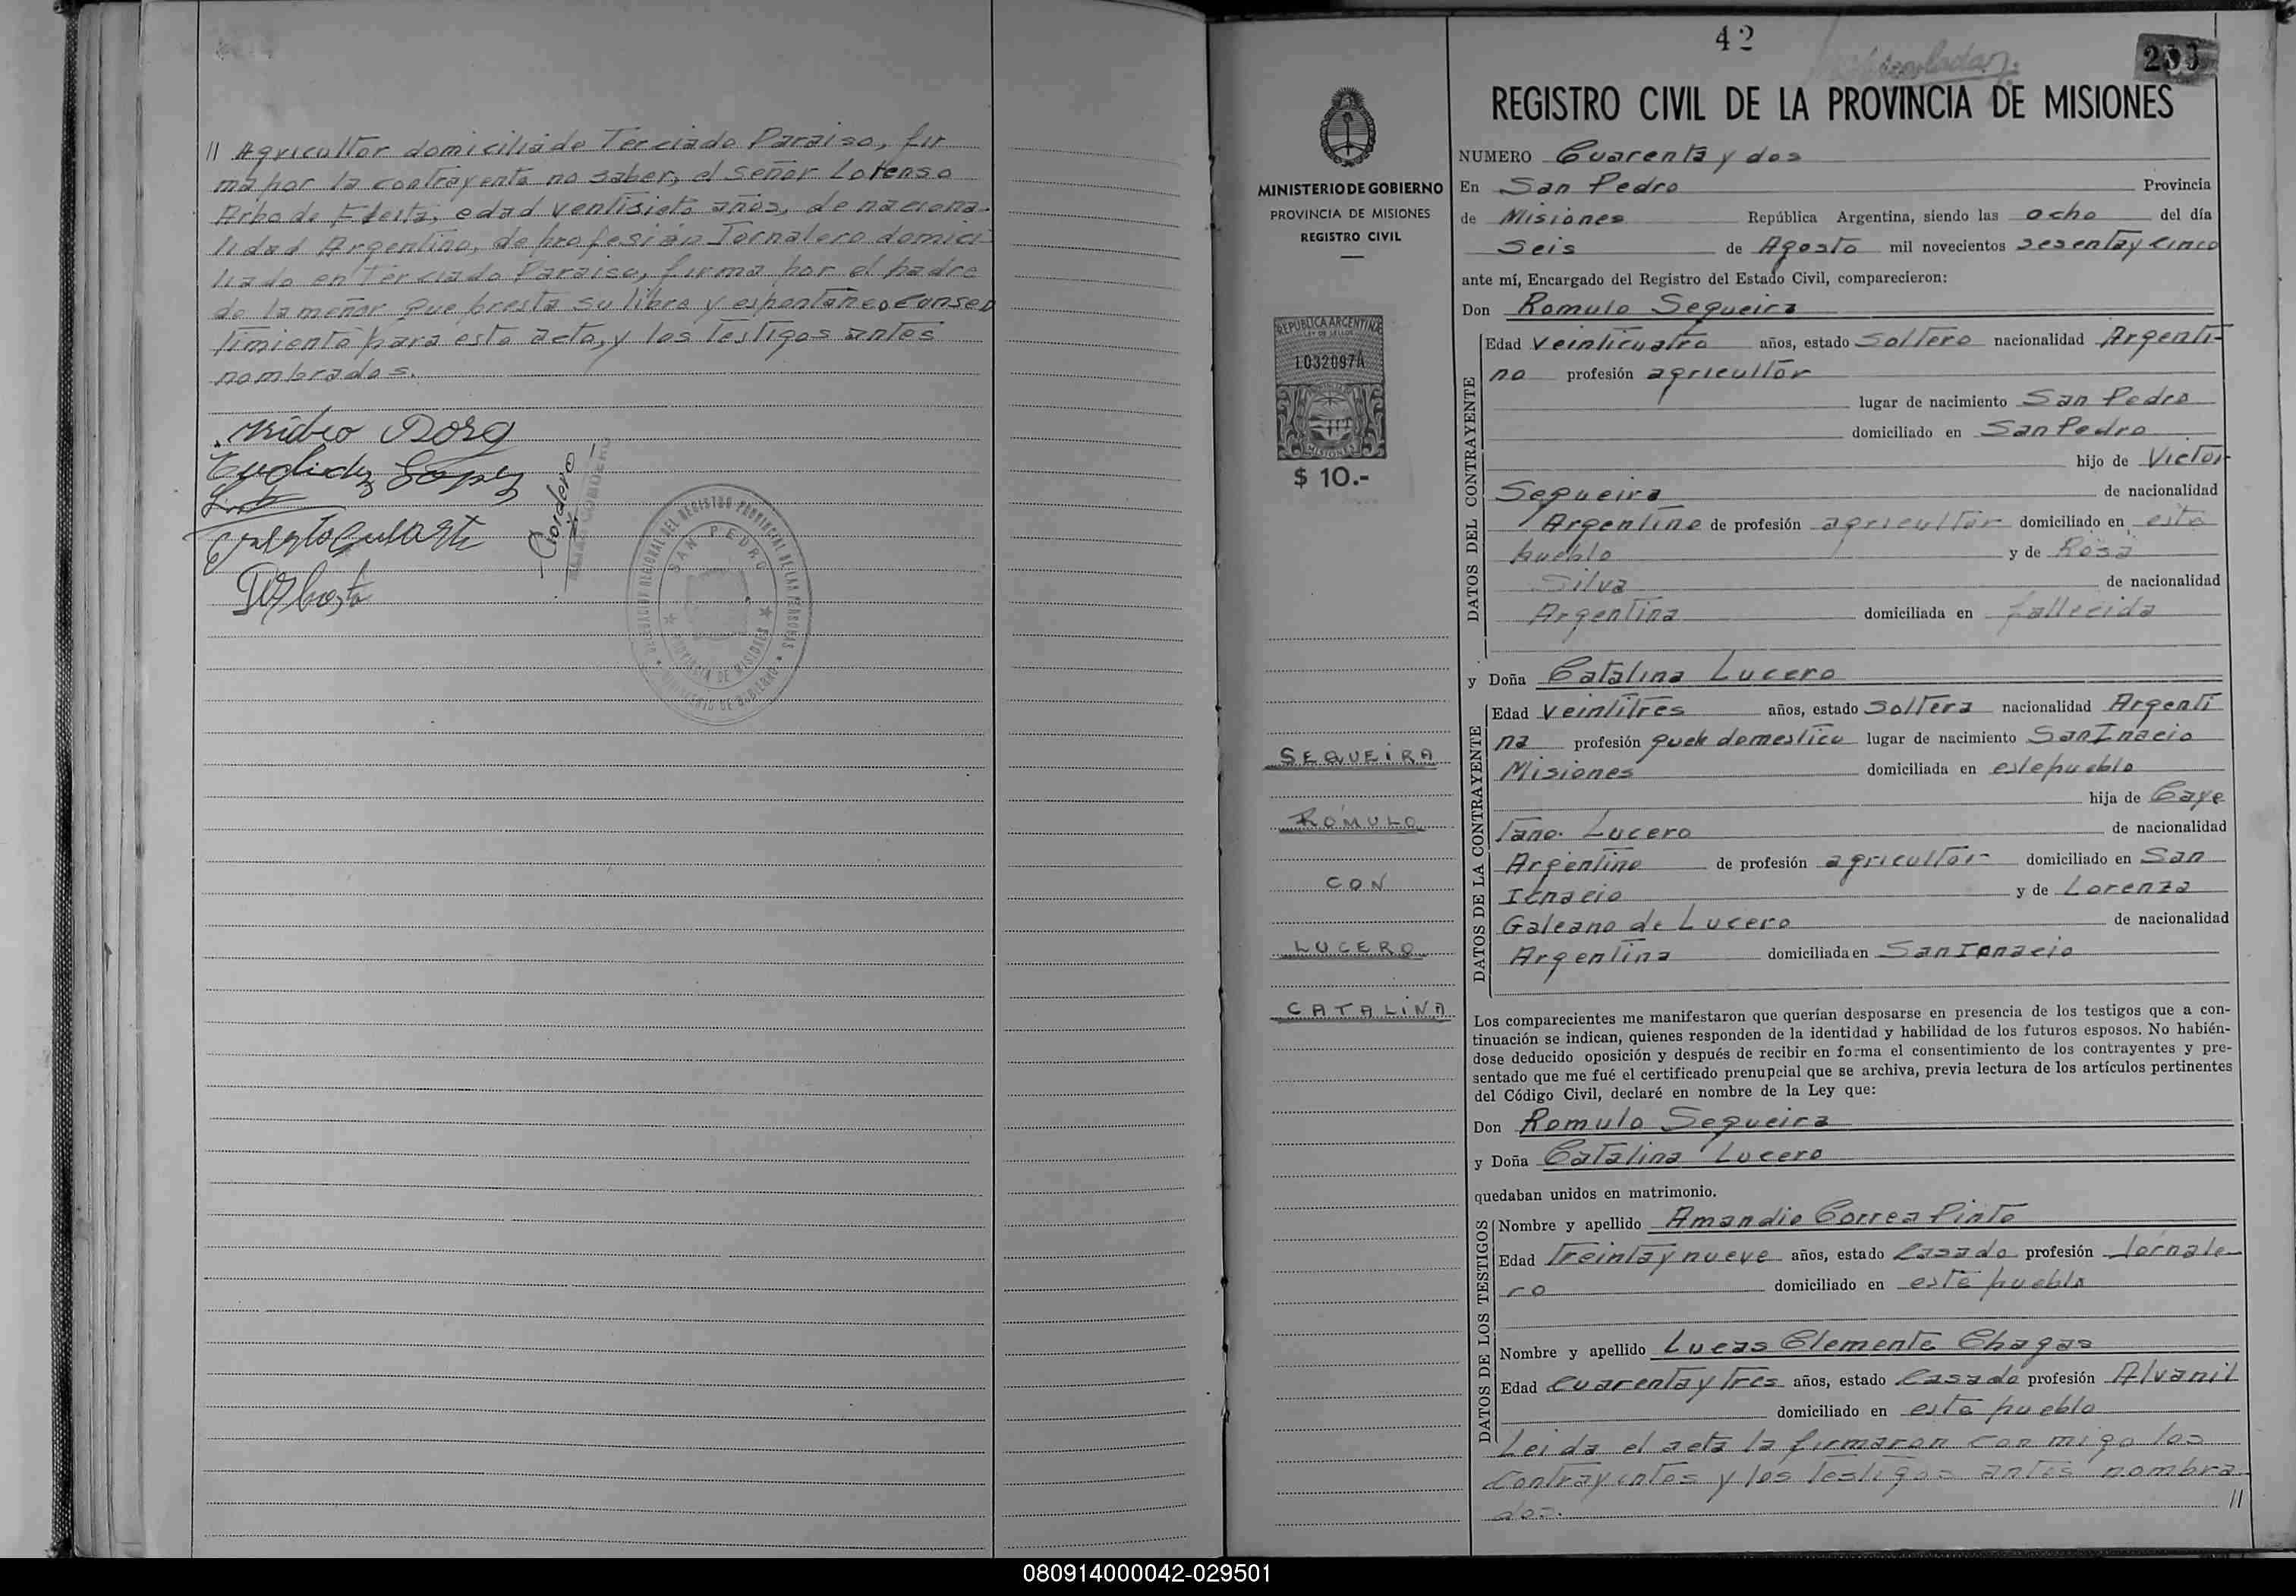 || Agricultor domiciliado Terciado Paraiso, fir
ma por la contrayente no saber, el señor Lorenso
edad ventisieto años, de naciona-
lidad Argentino, de profesión Jornalero domici
liado en Terciado Paraiso, firma por el padre
de la menor que presta su libre y espontáneo consen
timiento para este acto, y los testigos antes
nombrados.
SAN PEDRO
PROVINCIA DE MISIONES
42
REGISTRO CIVIL DE LA PROVINCIA DE MISIONES
MINISTERIO DE GOBIERNO
PROVINCIA DE MISIONES
REGISTRO CIVIL
REPUBLICA ARGENTINA
LEY DE SELLOS
1032097A
MISIONES
$ 10.-
SEQUEIRA
RÓMULO
CON
LUCERO
CATALINA
NUMERO Cuarenta y dos
En San Pedro Provincia
de Misiones República Argentina, siendo las ocho del día
Seis de Agosto mil novecientos sesentay cinco
ante mí, Encargado del Registro del Estado Civil, comparecieron:
Don Romulo Sequeira
DATOS DEL CONTRAYENTE
Edad veinticuatro años, estado Soltero nacionalidad Argenti-
no profesión agricultor
lugar de nacimiento San Pedro
domiciliado en San Pedro
hijo de Victor
Sequeira de nacionalidad
Argentino de profesión agricultor domiciliado en este
pueblo y de Rosa
Silva de nacionalidad
Argentina domiciliada en fallecida
y Doña Catalina Lucero
DATOS DE LA CONTRAYENTE
Edad veintitres años, estado Soltera nacionalidad Argenti
na profesión queh domestico lugar de nacimiento San Inacio
Misiones domiciliada en este pueblo
hija de Caye
tano Lucero de nacionalidad
Argentino de profesión agricultor domiciliado en San
Ignacio y de Lorenza
Galeano de Lucero de nacionalidad
Argentina domiciliada en San Ignacio
Los comparecientes me manifestaron que querían desposarse en presencia de los testigos que a con-
tinuación se indican, quienes responden de la identidad y habilidad de los futuros esposos. No habién-
dose deducido oposición y después de recibir en forma el consentimiento de los contrayentes y pre-
sentado que me fué el certificado prenupcial que se archiva, previa lectura de los artículos pertinentes
del Código Civil, declaré en nombre de la Ley que:
Don Romulo Sequeira
y Doña Catalina Lucero
quedaban unidos en matrimonio.
DATOS DE LOS TESTIGOS
Nombre y apellido Amandio Correa Pinto
Edad Treintay nueve años, estado Casado profesión Jornale
ro domiciliado en este pueblo
Nombre y apellido Lucas Clemente Chagas
Edad Cuarentay tres años, estado Casado profesión Alvanil
domiciliado en este pueblo
Leida el acta la firmaron con migo los
contrayentes y los testigos antes nombra
dos. ||
080914000042-029501